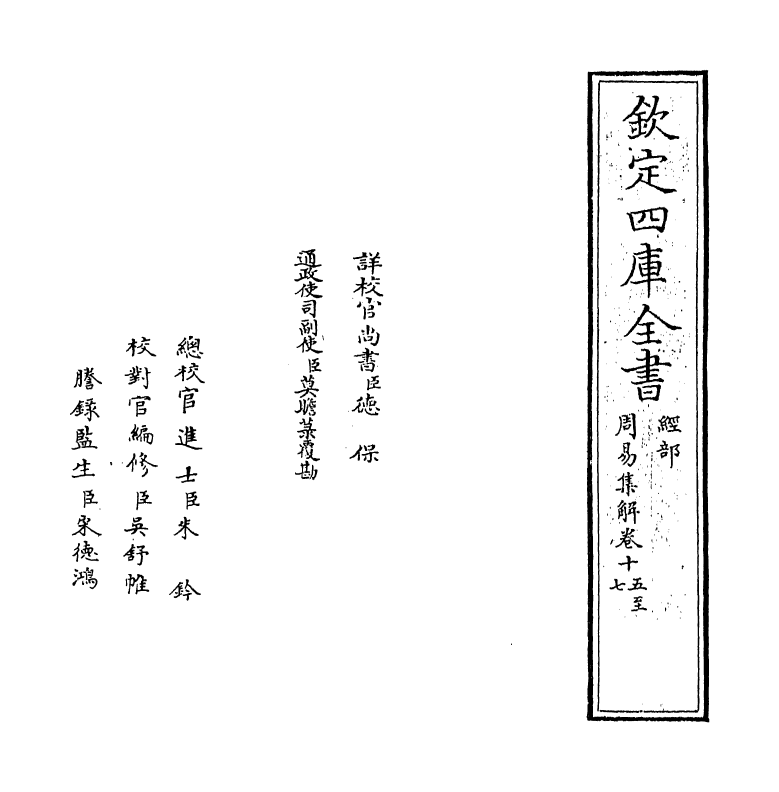 欽定四庫全書
經部
周易集解卷十五至七
詳校官尚書臣德保
通政使司副使臣莫瞻菉覆勘
總校官進士臣朱鈐
校對官編修臣吳舒帷
謄錄監生臣宋德鴻